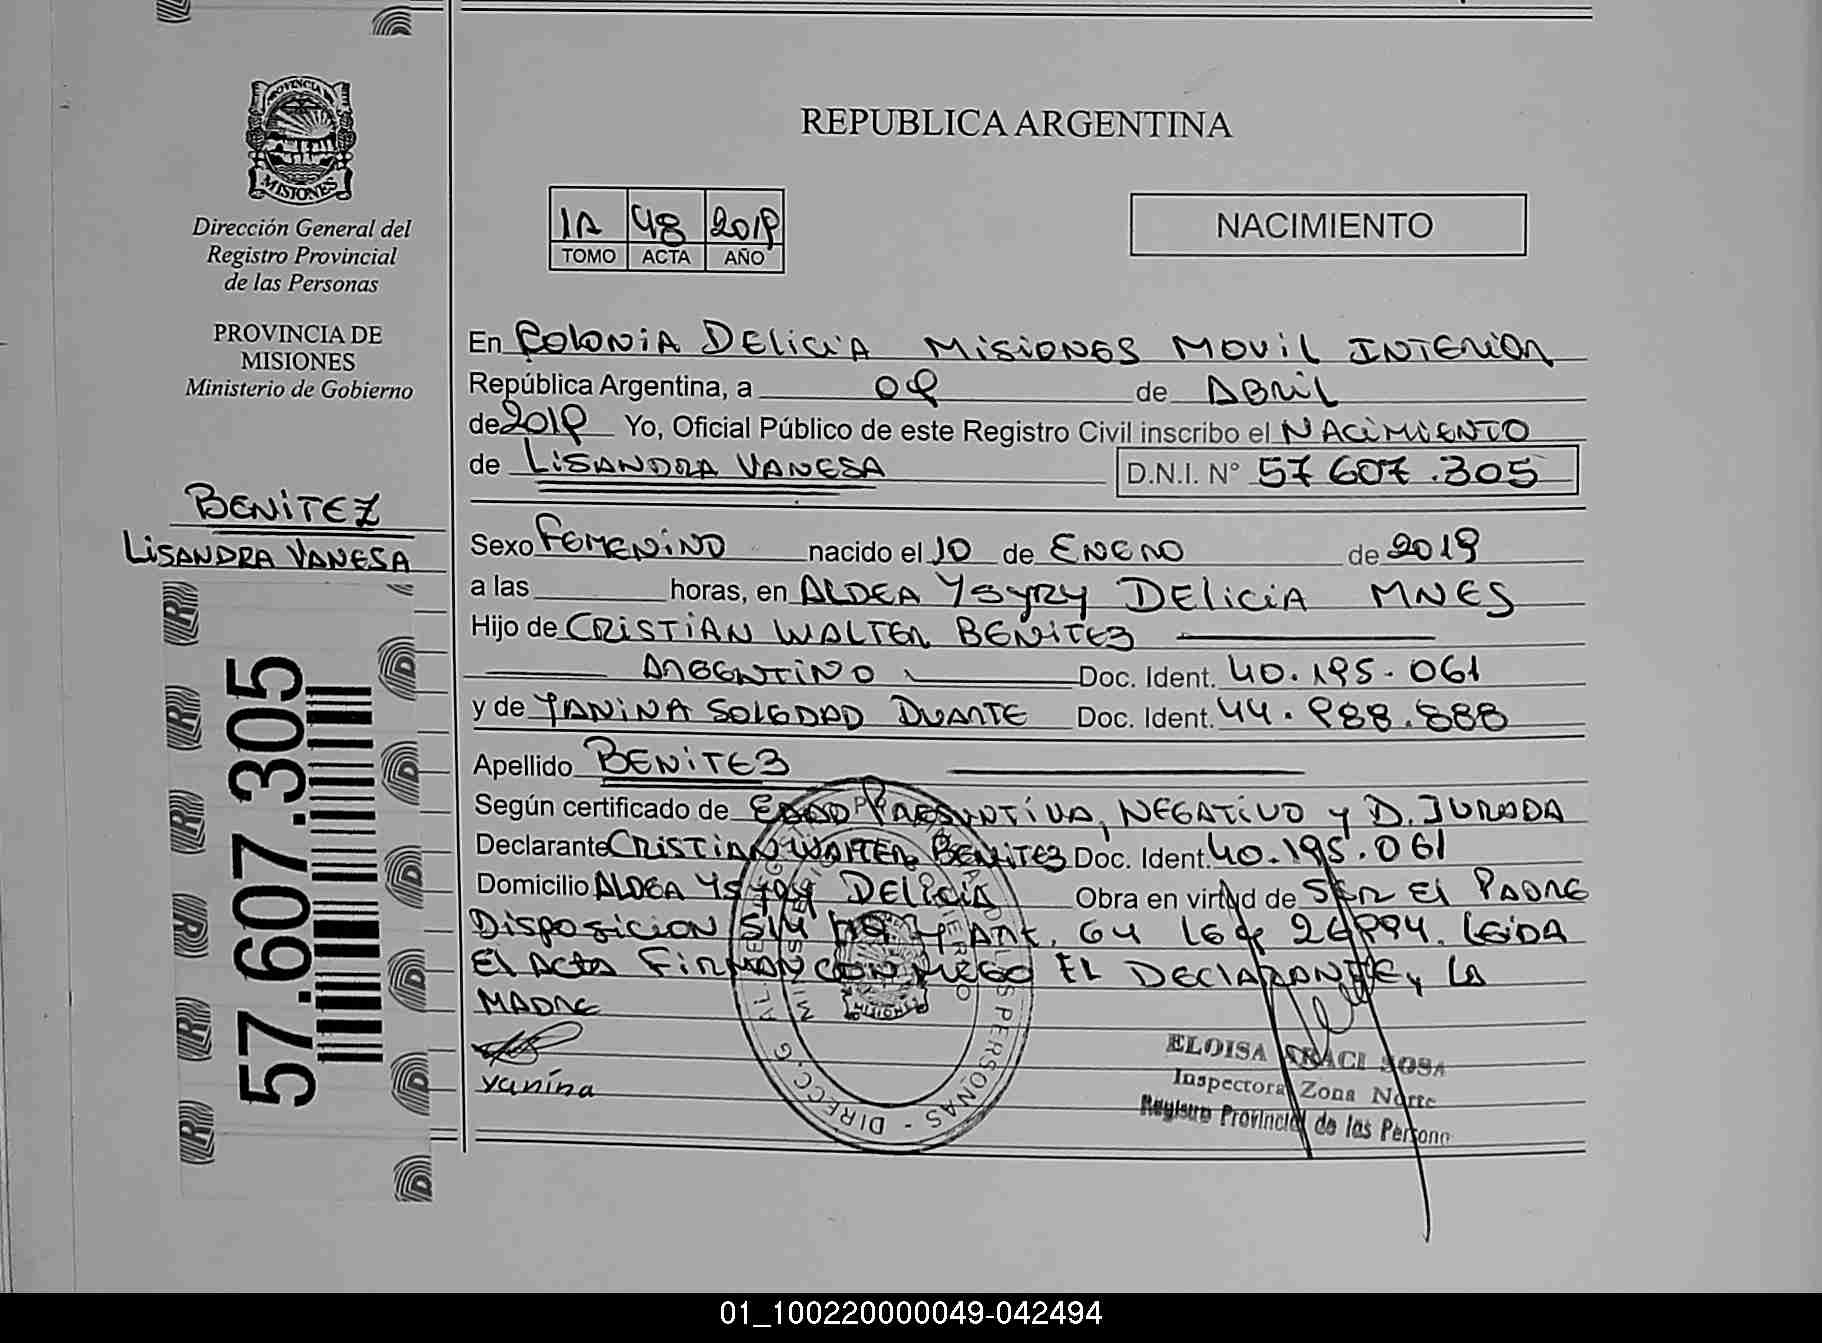 PROVINCIA DE
MISIONES
Dirección General del
Registro Provincial
de las Personas
PROVINCIA DE
MISIONES
Ministerio de Gobierno
BENITEZ
LISANDRA VANESA
57.607.305
REPUBLICA ARGENTINA
1A 48 2019
TOMO ACTA AÑO
NACIMIENTO
En COLONIA DELICIA MISIONES MOVIL INTERIOR
República Argentina, a 09 de ABRIL
de 2019 Yo, Oficial Público de este Registro Civil inscribo el NACIMIENTO
de LISANDRA VANESA D.N.I. N° 57 607.305
Sexo FEMENINO nacido el 10 de ENERO de 2019
a las horas, en ALDEA YSYRY DELICIA MNES
Hijo de CRISTIAN WALTER BENITEZ
ARGENTINO Doc. Ident. 40.195.061
y de YANINA SOLEDAD DUARTE Doc. Ident. 44.988.888
Apellido BENITEZ
Según certificado de EDAD PRESUNTIVA, NEGATIVO y D. JURADA
Declarante CRISTIAN WALTER BENITEZ Doc. Ident. 40.195.061
Domicilio ALDEA YSYRY DELICIA Obra en virtud de SER EL PADRE
DISPOSICION y ART. 64 LEY 26994. LEIDA
EL ACTA FIRMAN CONMIGO EL DECLARANTE y LA
MADRE
yanina
ELOISA ARACI SOSA
Inspectora Zona Norte
Registro Provincial de las Persona
01_100220000049-042494